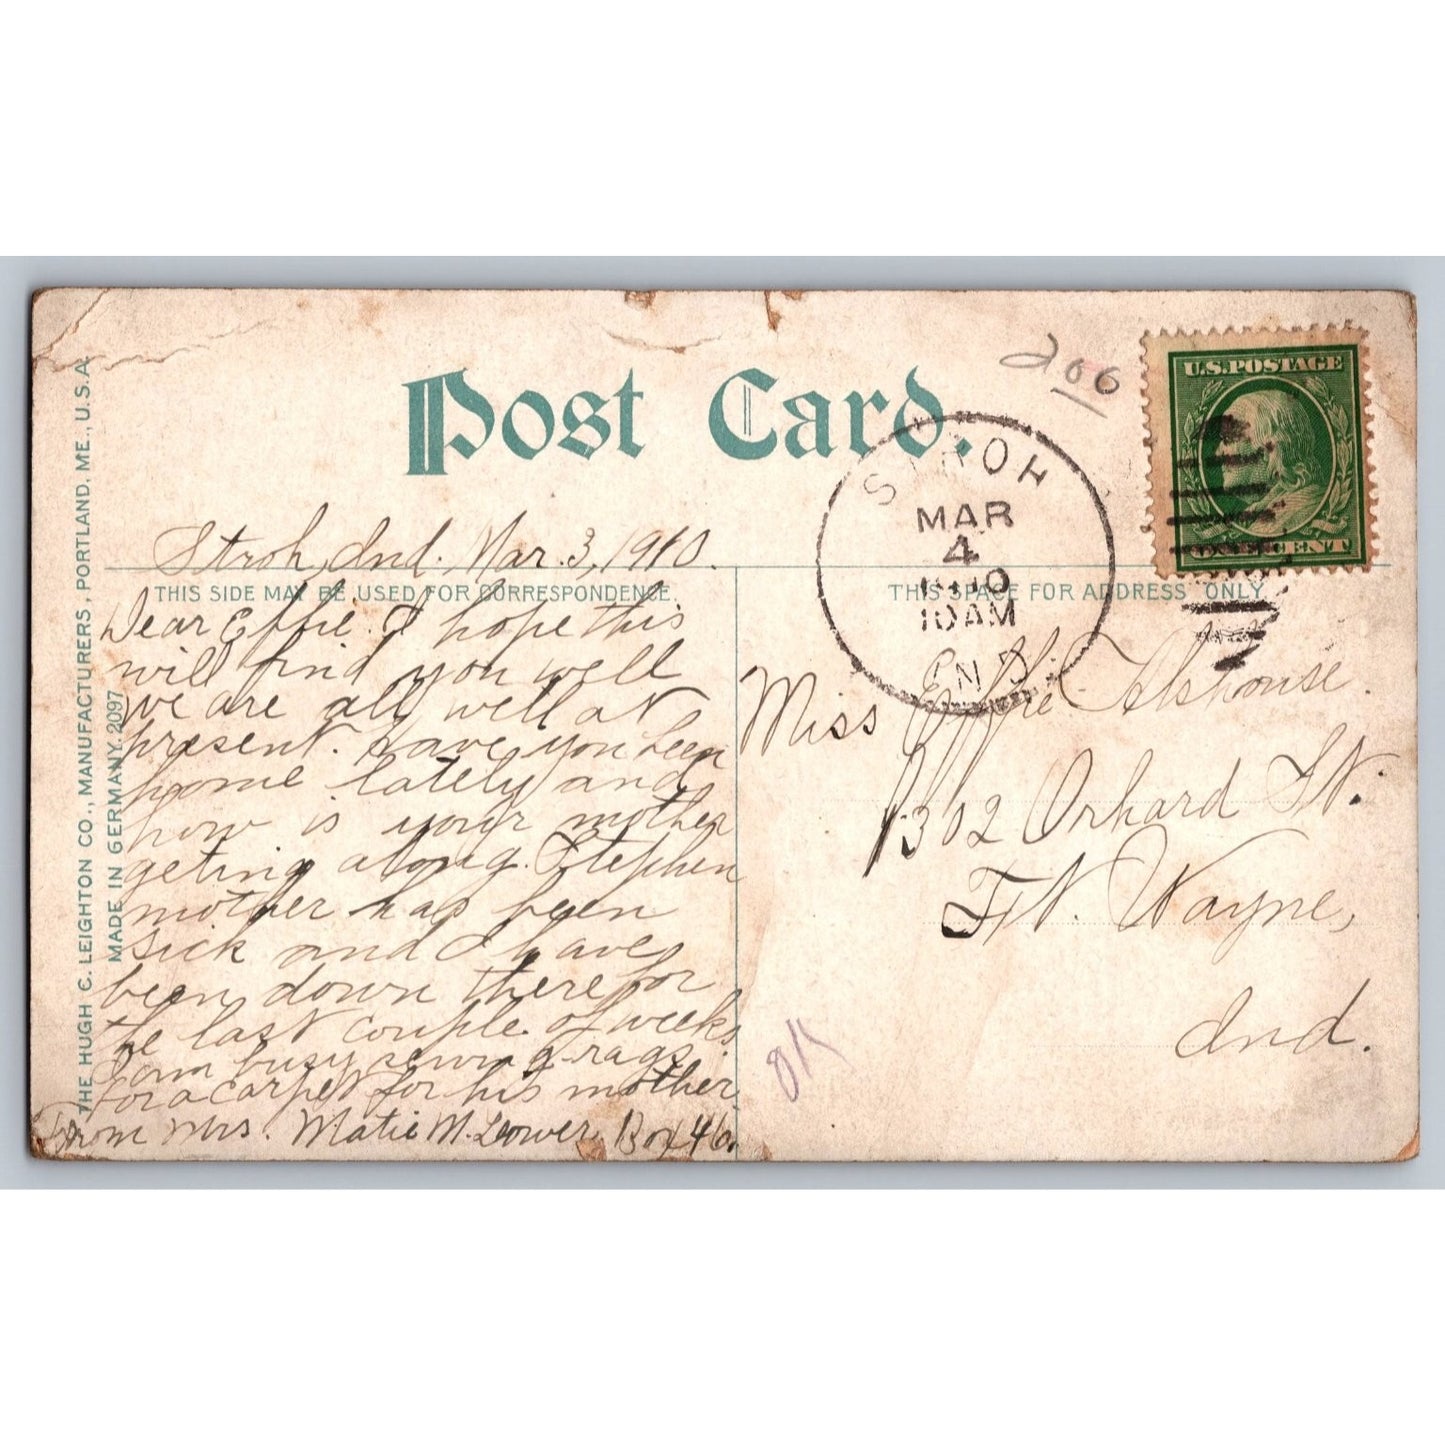 Post Card.
200
U.S. POSTAGE
ONE CENT
STROH
MAR
4
1910
10AM
IND
Stroh, Ind. Mar. 3, 1910.
THIS SIDE MAY BE USED FOR CORRESPONDENCE.
THIS SPACE FOR ADDRESS ONLY
Dear Effie. I hope this
will find you well
we are all well at
present. have you been
home lately and
how is your mother
geting along. Stephen
mother has been
sick and I have
been down there for
the last couple of weeks
I am busy sewing rags
for a carpet for his mother
From Mrs. Matie M. Lower, Box 46.
Miss Effie Alshouse.
1302 Orhard St.
Ft. Wayne,
Ind.
OK
THE HUGH C. LEIGHTON CO., MANUFACTURERS, PORTLAND, ME., U.S.A.
MADE IN GERMANY. 2097